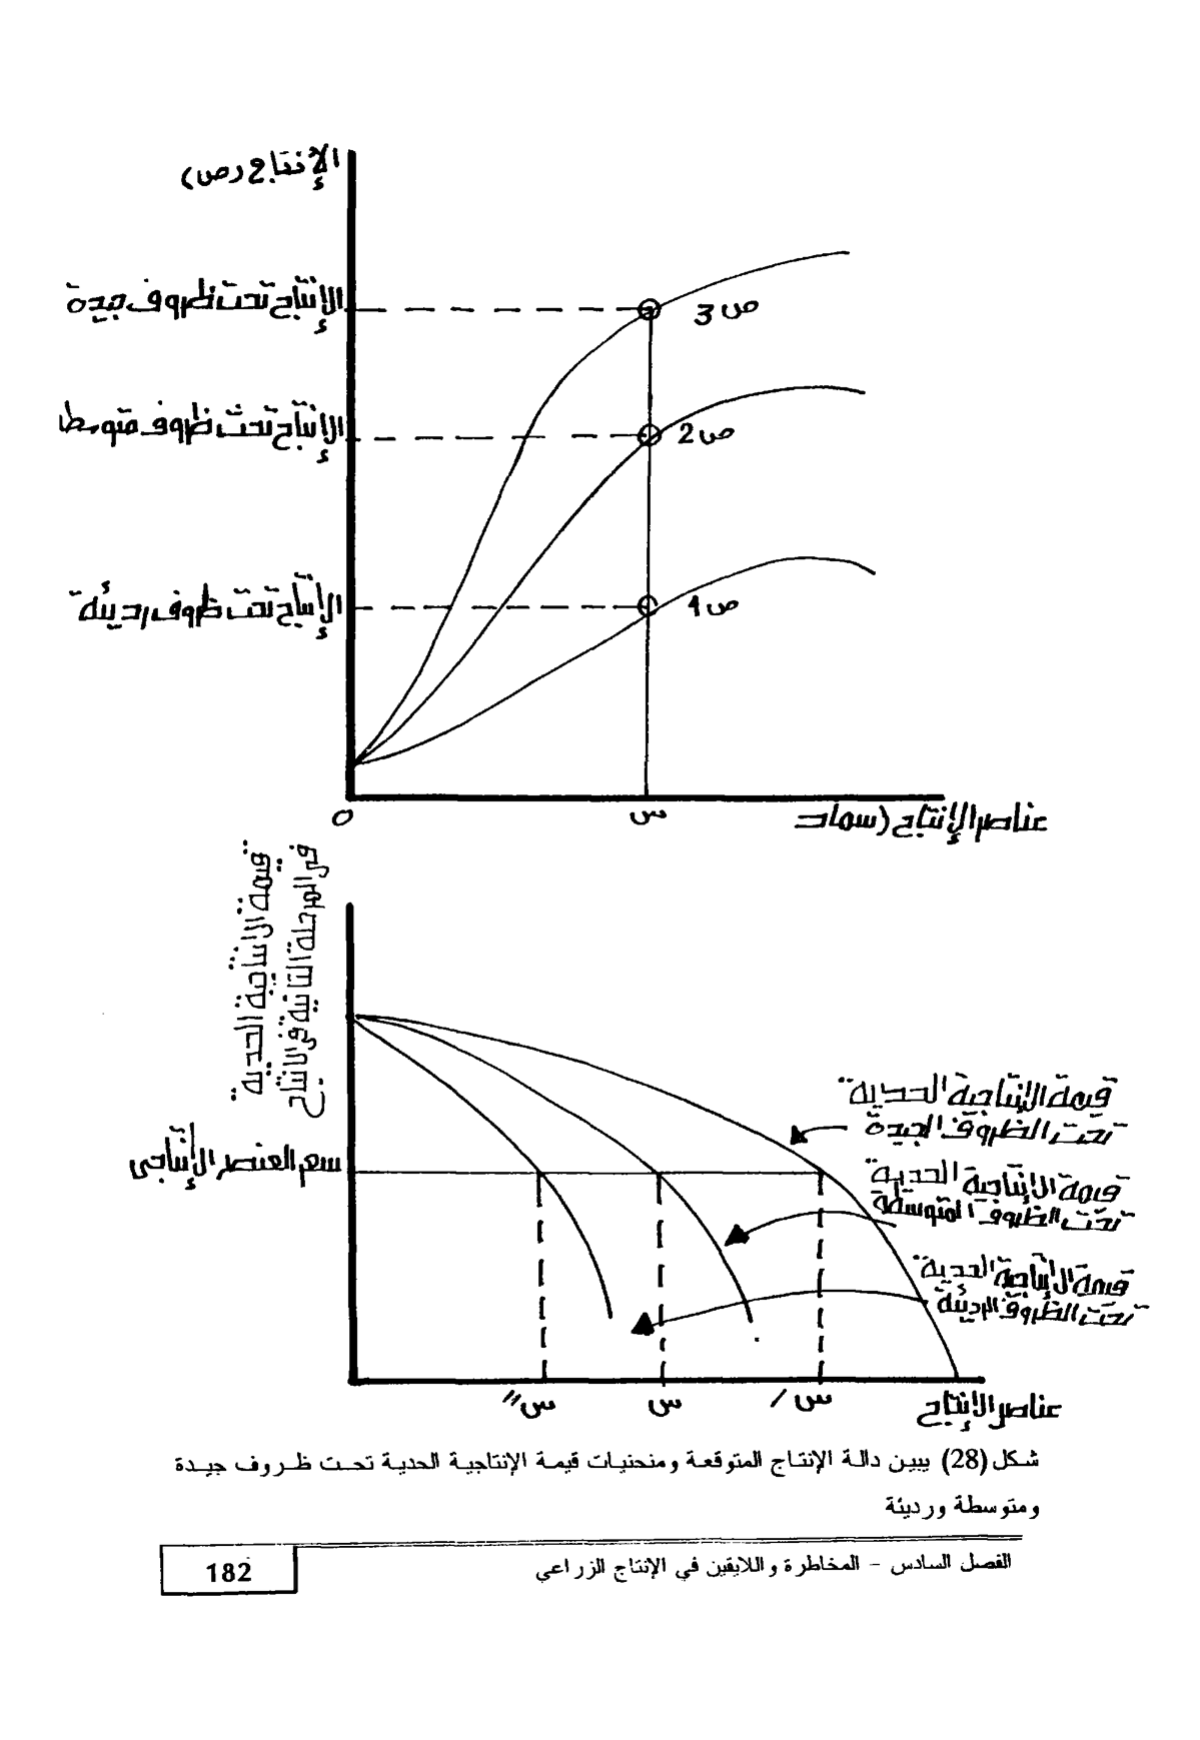 الإنتاج (ص)
الإنتاج تحت ظروف جيدة
ص3
الإنتاج تحت ظروف متوسط
ص2
الإنتاج تحت ظروف رديئة
ص1
0
س
عناصر الإنتاج (سماد
قيمة الانتاجية الحدية
في المرحلة الثانية في الانتاج
قيمة الإنتاجية الحدية
تحت الظروف الجيدة
سعر العنصر الإنتاجي
قيمة الإنتاجية الحدية
تحت الظروف المتوسطة
قيمة الإنتاجية الحدية
تحت الظروف الرديئة
س//
س
س/
عناصر الإنتاج
شكل (28) يبين دالة الإنتاج المتوقعة ومنحنيات قيمة الإنتاجية الحدية تحت ظروف جيدة
ومتوسطة ورديئة
الفصل السادس - المخاطرة واللايقين في الإنتاج الزراعي
182